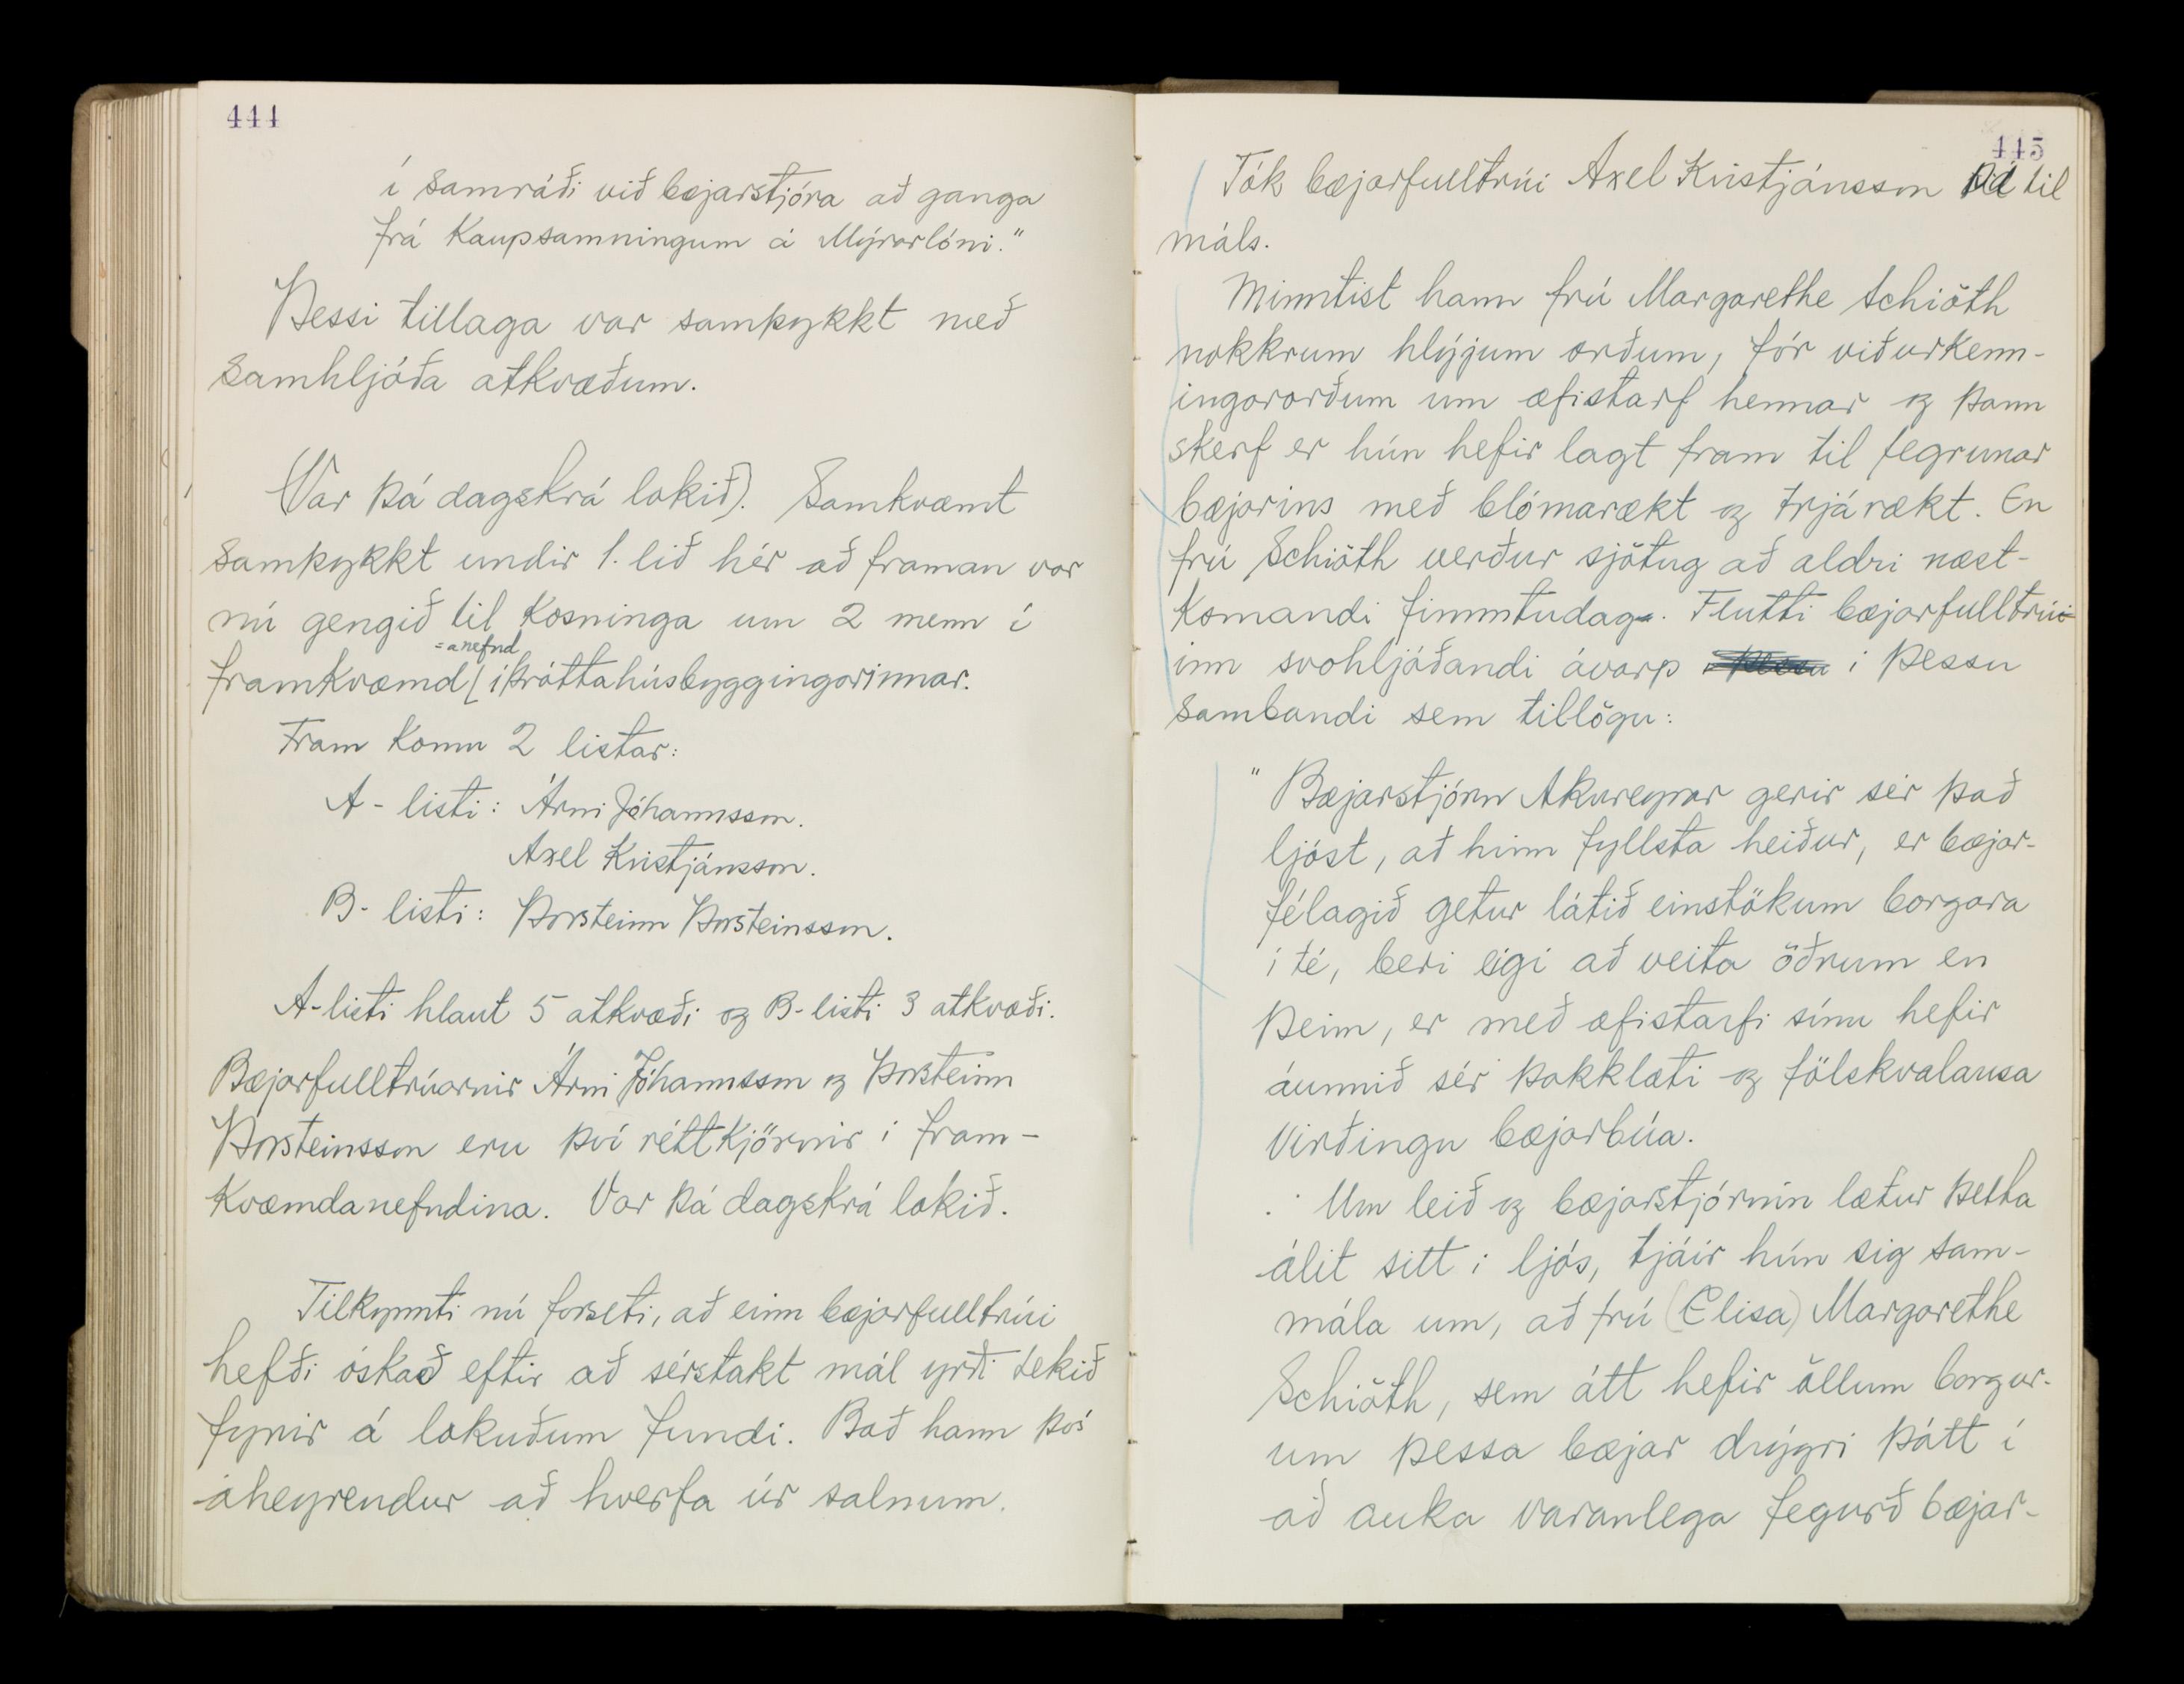 444
í samráði við bæjarstjóra að ganga
frá Kaupsamningum á Mýrarlóni."
Þessi tillaga var samþykkt með
samhljóða atkvæðum.
(Var þá dagskrá lokið). Samkvæmt
samþykkt undir 1. lið hér að framan var
nú gengið til kosninga um 2 menn í
=anefnd
framkvæmd/íþróttahúsbyggingarinnar.
Fram komu 2 listar:
A-listi: Árni Jóhannsson.
Axel Kristjánsson.
B-listi: Þorsteinn Þorsteinsson.
A-listi hlaut 5 atkvæði og B-listi 3 atkvæði.
Bæjarfulltrúarnir Árni Jóhannsson og Þorsteinn
Þorsteinsson eru því réttkjörnir í fram-
kvæmdanefndina. Var þá dagskrá lokið.
Tilkynnti nú forseti, að einn bæjarfulltrúi
hefði óskað eftir að sérstakt mál yrði tekið
fyrir á lokuðum fundi. Bað hann því
áheyrendur að hverfa úr salnum.
445
Tók bæjarfulltrúi Axel Kristjánsson þá til
máls.
Minntist hann frú Margarethe Schiöth
nokkrum hlýjum orðum, fór viðurkenn-
ingarorðum um æfistarf hennar og þann
skerf er hún hefir lagt fram til fegrunar
bæjarins með blómarækt og trjárækt. En
frú Schiöth verður sjötug að aldri næst-
komandi fimmtudag. Flutti bæjarfulltrúi-
inn svohljóðandi ávarp í þessu
sambandi sem tillögu:
"Bæjarstjórn Akureyrar gerir sér það
ljóst, að hinn fyllsta heiður, er bæjar-
félagið getur látið einstökum borgara
í té, beri eigi að veita öðrum en
þeim, er með æfistarfi sínu hefir
áunnið sér þakklæti og fölskvalausa
virðingu bæjarbúa.
Um leið og bæjarstjórnin lætur þetta
álit sitt í ljós, tjáir hún sig sam-
mála um, að frú (Elisa) Margarethe
Schiöth, sem átt hefir öllum borgur-
um þessa bæjar drýgri þátt í
að auka varanlega fegurð bæjar-